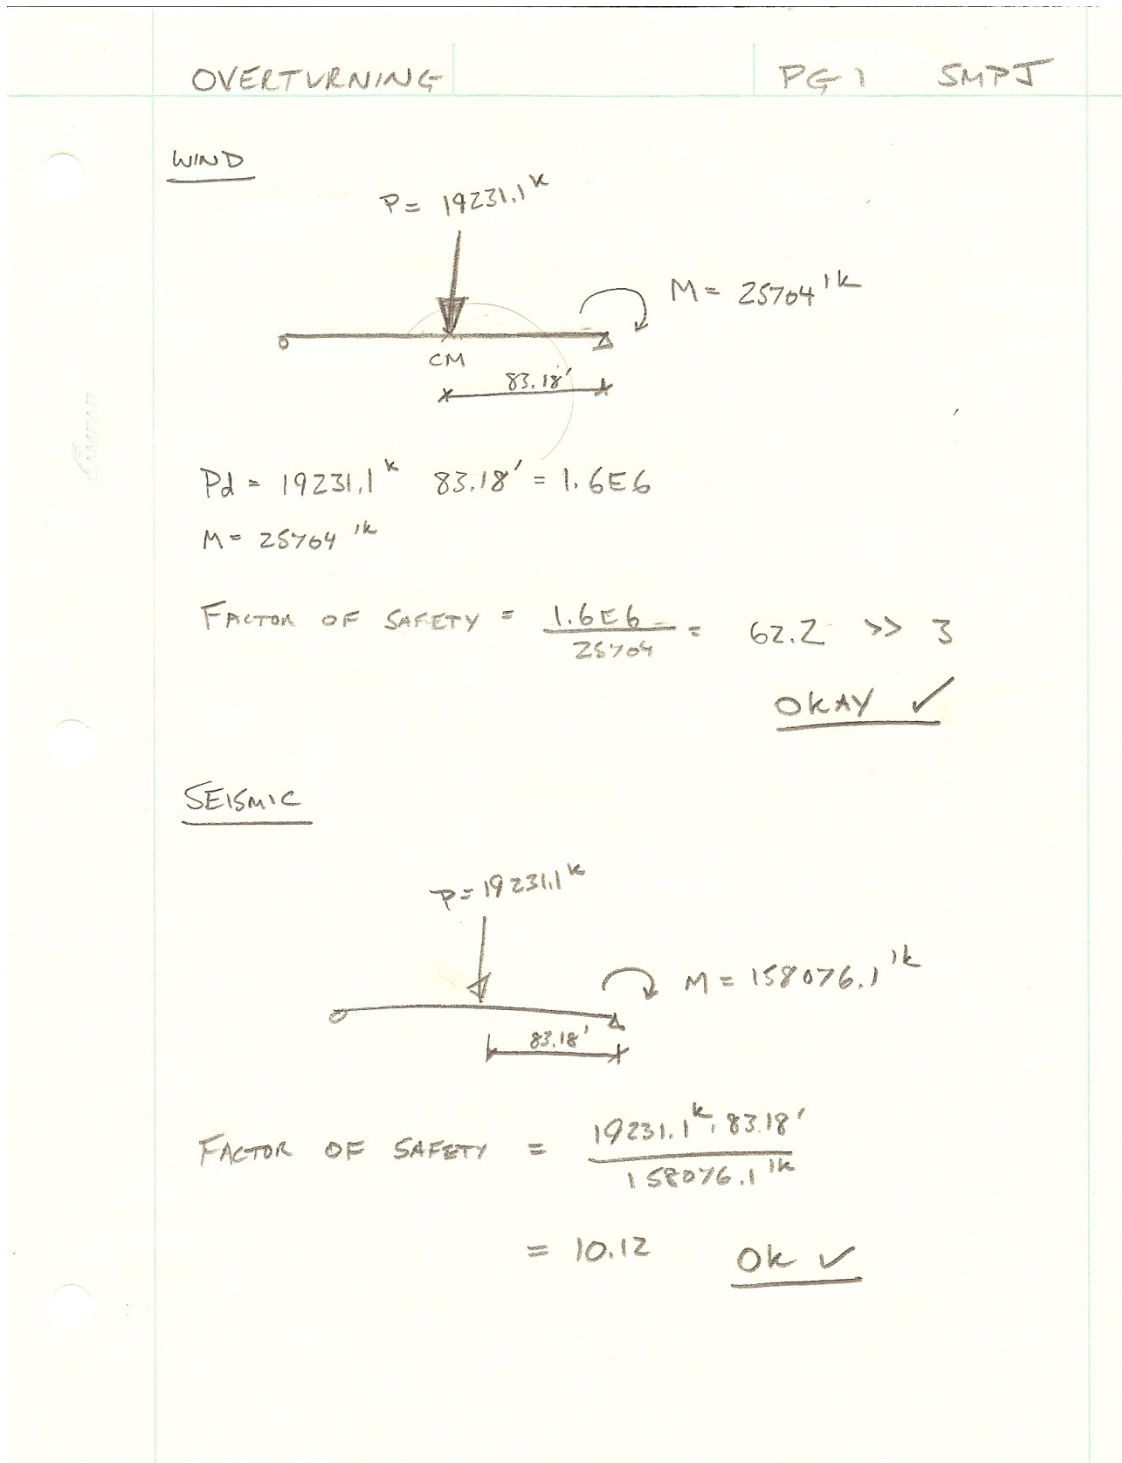 OVERTURNING PG 1 SMPJ
WIND
P= 19231.1ᵏ
M= 25704 'ᵏ
CM
83.18'
Pd = 19231.1ᵏ 83.18' = 1.6E6
M= 25704 'ᵏ
FACTOR OF SAFETY = 1.6E6 / 25704 = 62.2 >> 3
OKAY ✓
SEISMIC
P=19231.1ᵏ
M = 158076.1 'ᵏ
83.18'
FACTOR OF SAFETY = 19231.1ᵏ · 83.18' / 158076.1 'ᵏ
= 10.12 Ok ✓